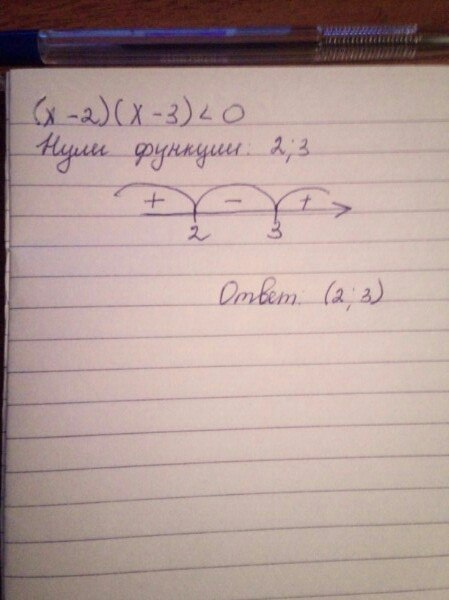 (x-2)(x-3)<0
Нули функции: 2;3
+ - +
2 3
Ответ: (2;3)